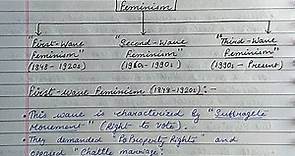 Feminism
"First-Wave "Second-Wave "Third-Wave
Feminism" Feminism" Feminism"
(1848-1920s) (1960-1990s) (1990s - Present)
First-Wave Feminism (1848-1920s):-
• This wave is characterized by "Suffragete
Movement" (Right to Vote).
• They demanded "Property Rights" and
opposed "Chattle marriage".